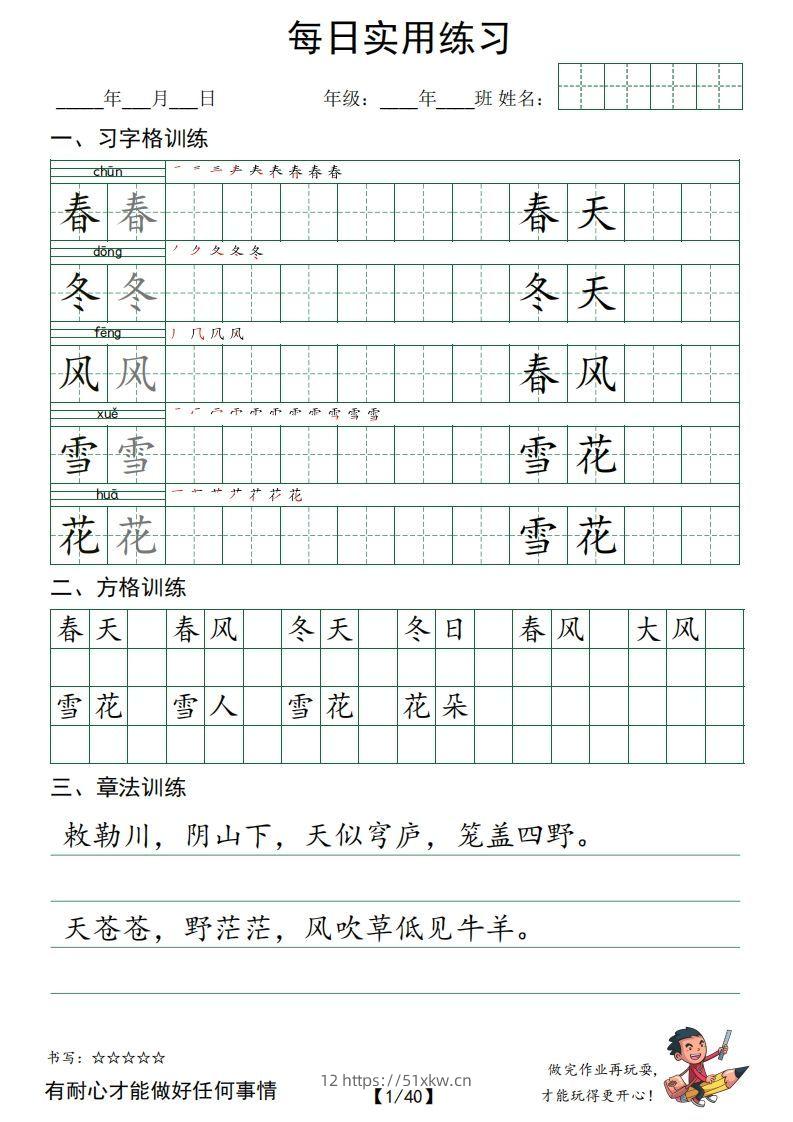 每日实用练习
_____年___月___日 年级：____年____班 姓名：
一、习字格训练
chūn
春 春 春 天
dōng
冬 冬 冬 天
fēng
风 风 春 风
xuě
雪 雪 雪 花
huā
花 花 雪 花
二、方格训练
春天 春风 冬天 冬日 春风 大风
雪花 雪人 雪花 花朵
三、章法训练
敕勒川，阴山下，天似穹庐，笼盖四野。
天苍苍，野茫茫，风吹草低见牛羊。
书写：☆☆☆☆☆
有耐心才能做好任何事情
12 https://51xkw.cn
【1/40】
做完作业再玩耍，
才能玩得更开心！